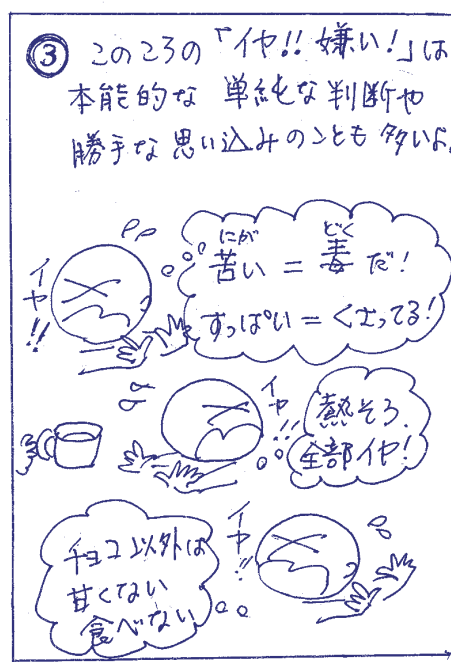 ③ このころの「イヤ!! 嫌い!」は
本能的な 単純な判断や
勝手な思い込みのことも 多いよ。
イヤ!!
にが どく
苦い = 毒だ!
すっぱい = くさってる!
イヤ!!
熱そう
全部イヤ!
イヤ!!
チョコ以外は
甘くない
食べない